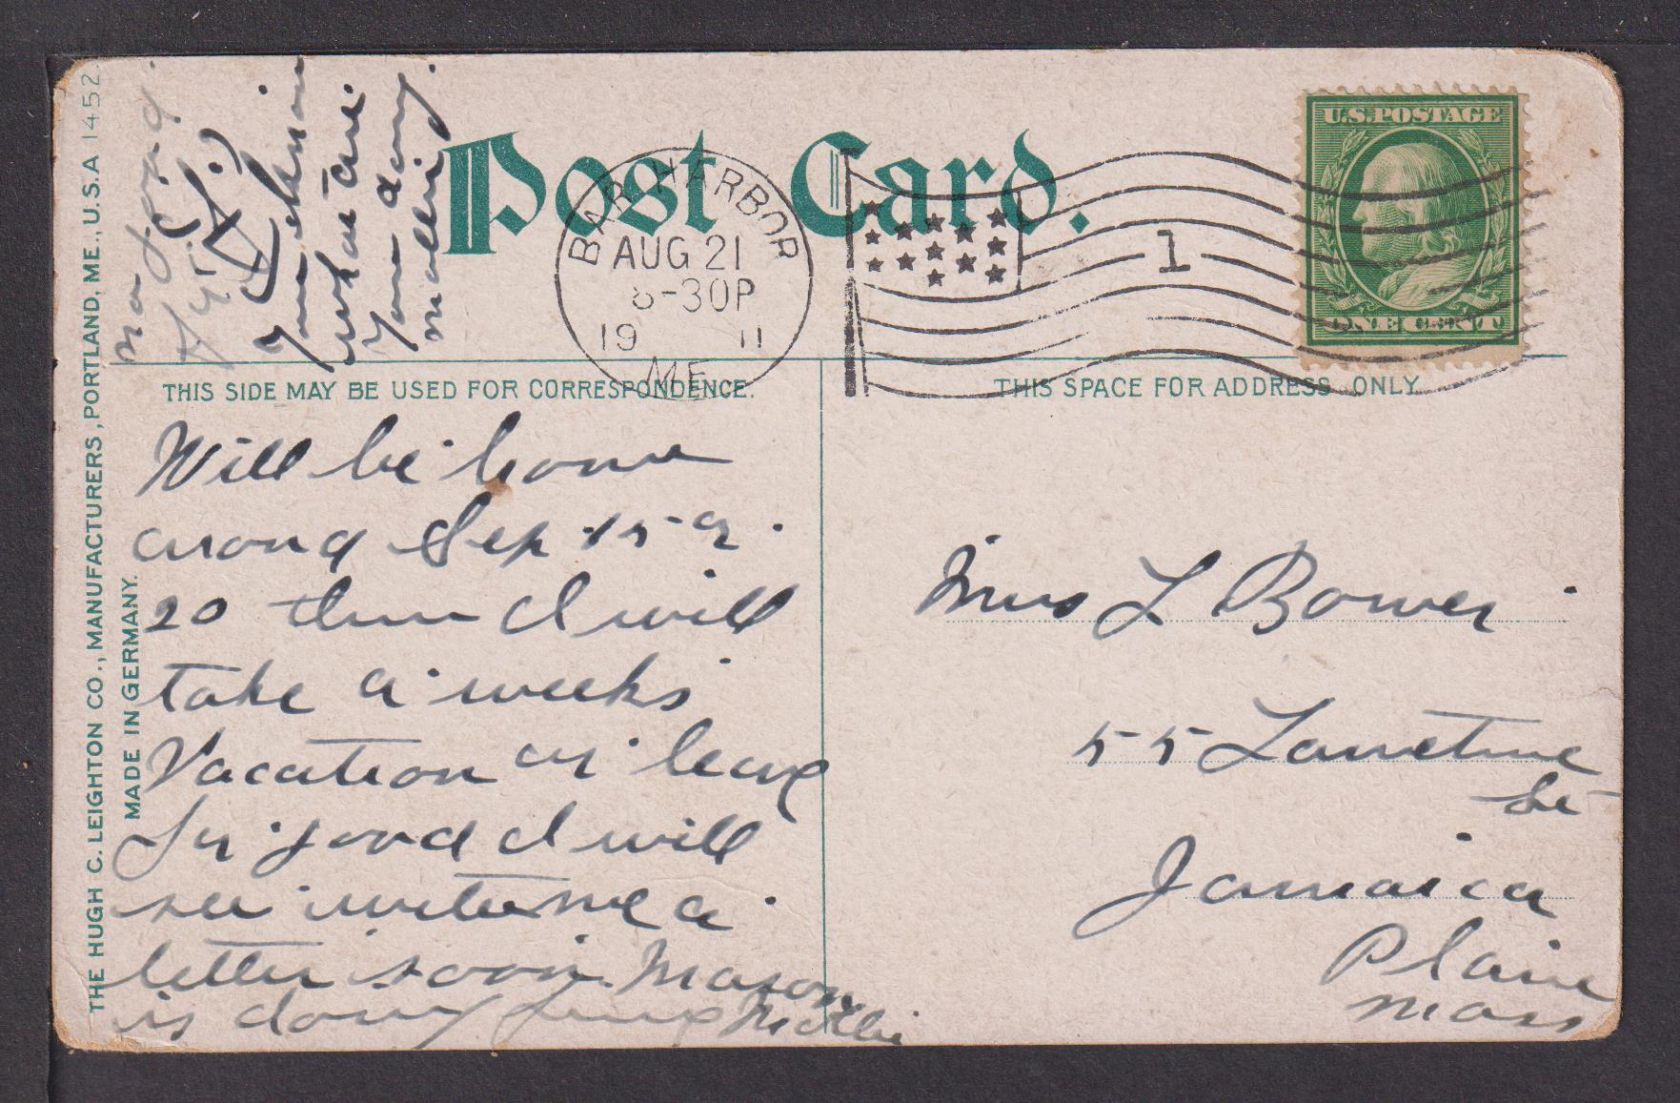 Post Card.
BAR HARBOR
AUG 21
8-30P
19 11
ME.
1
U.S. POSTAGE
ONE CENT
THE HUGH C. LEIGHTON CO., MANUFACTURERS, PORTLAND, ME., U.S.A 1452
MADE IN GERMANY.
THIS SIDE MAY BE USED FOR CORRESPONDENCE.
THIS SPACE FOR ADDRESS ONLY
Will be home
around Sep 15 or
20 then I will
take a weeks
Vacation or leave
for good I will
see write me a
letter soon. Mason
is doing fine Mollie
what are
you doing
Mollie
Mrs L Bower
55 Lawetine
St
Jamaica
Plain
Mass